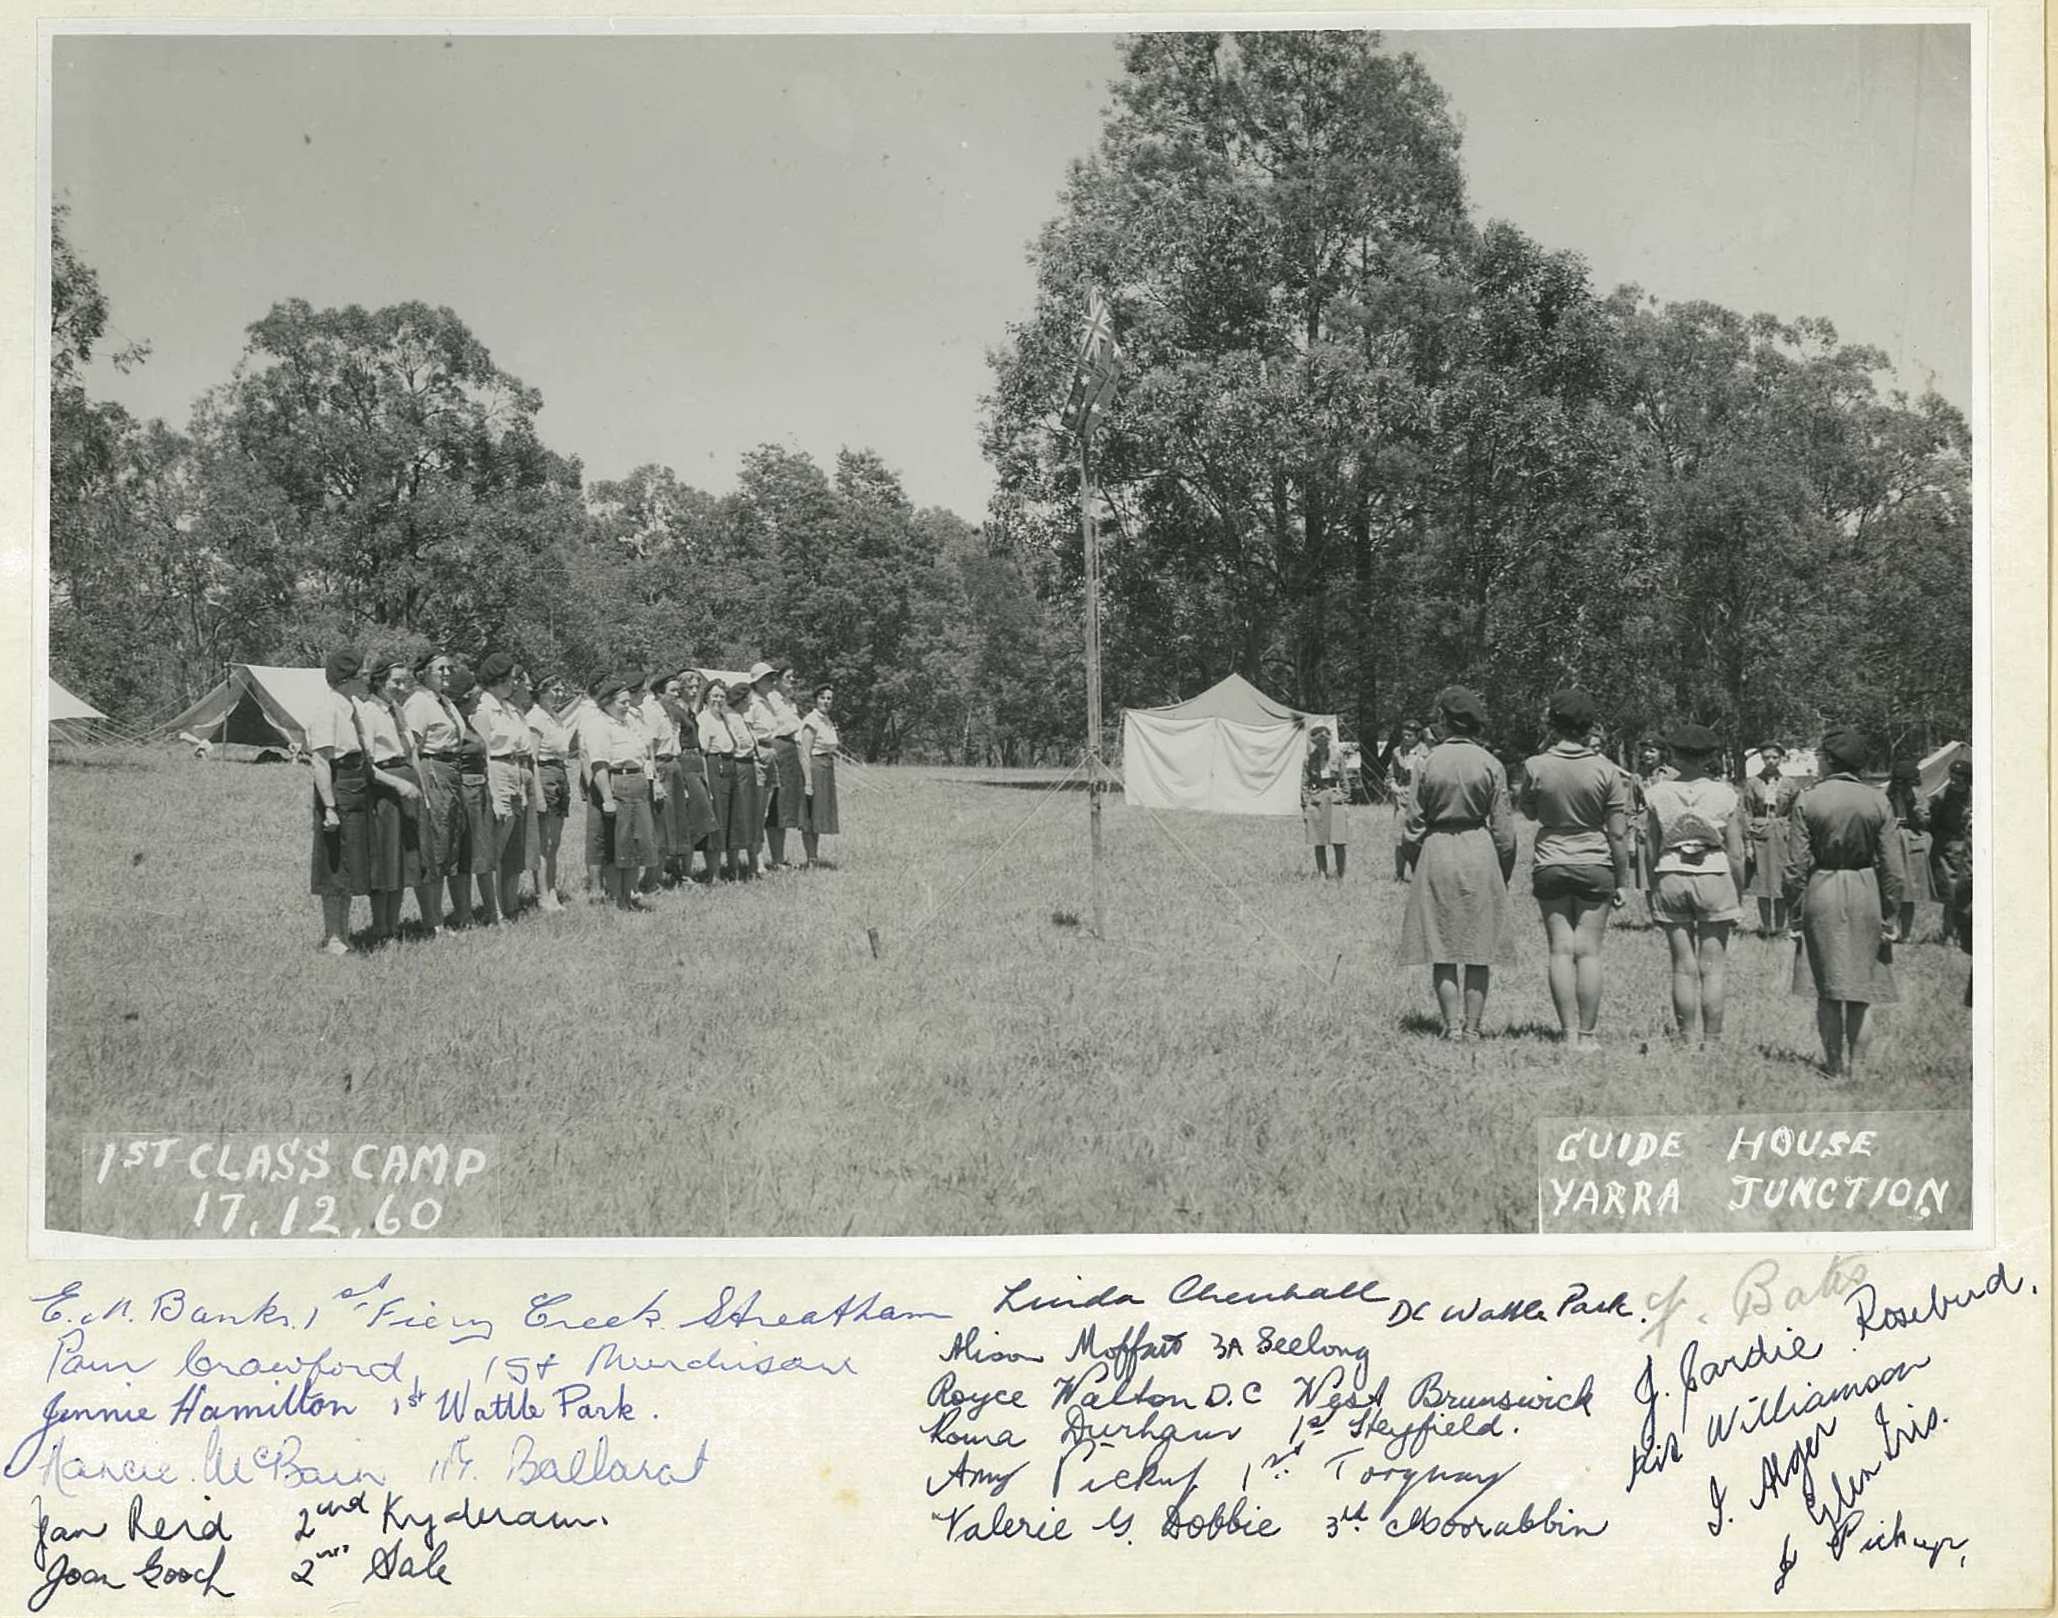 1ST CLASS CAMP
17.12.60
GUIDE HOUSE
YARRA JUNCTION
E. M. Banks. 1st Fiery Creek. Streatham
Pam Crawford, 1st Murchison
Jennie Hamilton 1st Wattle Park.
Nancie McBain Ballarat
Jan Reid 2nd Kyabram.
Joan Gooch 2nd Sale
Linda Chenhall DC Wattle Park.
Alison Moffatt 3A Geelong
Royce Walton D.C West Brunswick
Roma Durham 1st Heyfield.
Amy Pickup 1st Torquay
Valerie G. Dobbie 3rd Moorabbin
Bates
J. Jardie Rosebud.
Kit Williamson
J. Alger
Glen Iris.
J Pickup,